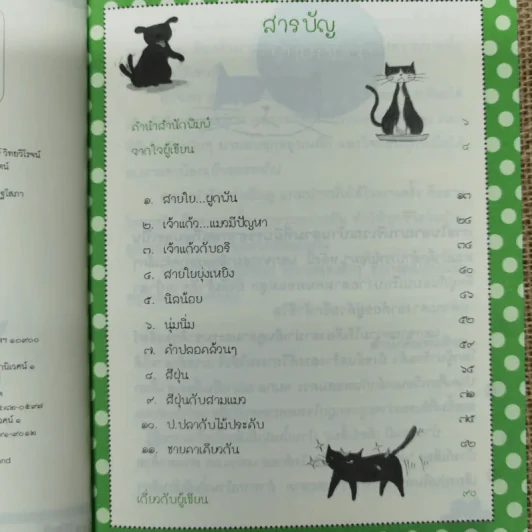 สารบัญ
คำนำสำนักพิมพ์ ๖
จากใจผู้เขียน ๘
๑. สายใย...ผูกพัน ๑๓
๒. เจ้าแก้ว...แมวมีปัญหา ๒๔
๓. เจ้าแก้วกับอริ ๓๔
๔. สายใยยุ่งเหยิง ๔๐
๕. นิลน้อย ๔๖
๖. นุ่มนิ่ม ๕๒
๗. คำปลอดล้วนๆ ๕๙
๘. สีฝุ่น ๖๕
๙. สีฝุ่นกับสามแมว ๗๑
๑๐. ป.ปลากับไม้ประดับ ๗๕
๑๑. ชายคาเดียวกัน ๘๒
เกี่ยวกับผู้เขียน ๙๐